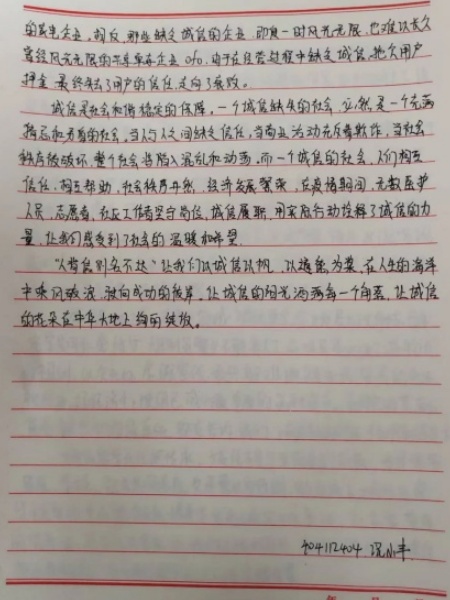 的龙头企业。相反，那些缺乏诚信的企业，即使一时风光无限，也难以长久
曾经风光无限的共享单车企业 ofo，由于在经营过程中缺乏诚信，拖欠用户
押金，最终失去了用户的信任，走向了衰败。
诚信是社会和谐稳定的保障。一个诚信缺失的社会，必然是一个充满
猜忌和矛盾的社会，当人与人之间缺乏信任，当商业活动充斥着欺诈，当社会
秩序被破坏，整个社会将陷入混乱和动荡，而一个诚信的社会，人们相互
信任，相互帮助，社会秩序井然，经济发展繁荣，在疫情期间，无数医护
人员，志愿者，社区工作者坚守岗位，诚信履职，用实际行动诠释了诚信的力
量，让我们感受到了社会的温暖和希望
“人背信则名不达”让我们以诚信以帆，以道德为桨，在人生的海洋
中乘风破浪，驶向成功的彼岸，让诚信的阳光洒满每一个角落，让诚信
的花朵在中华大地上绚丽绽放。
404112404 沉小丰